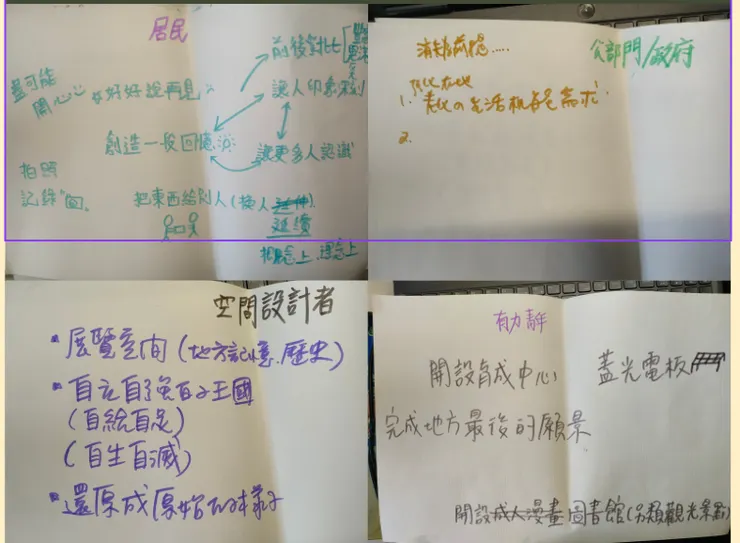 居民
前後對比
盡可能
開心
好好說再見
讓人印象深刻
創造一段回憶
讓更多人認識
拍照
記錄
把東西給別人(換人延伸)
延續
概念上、理念上
公部門/政府
消耗前提.....
1.
老化の生活機能需求
2.
空間設計者
展覽空間(地方記憶.歷史)
自立自強的王國
(自給自足)
(自生自滅)
還原成原始的樣子
有力青年
開設育成中心
蓋光電板
完成地方最後的願景
開設成人漫畫圖書館(另類觀光景點)